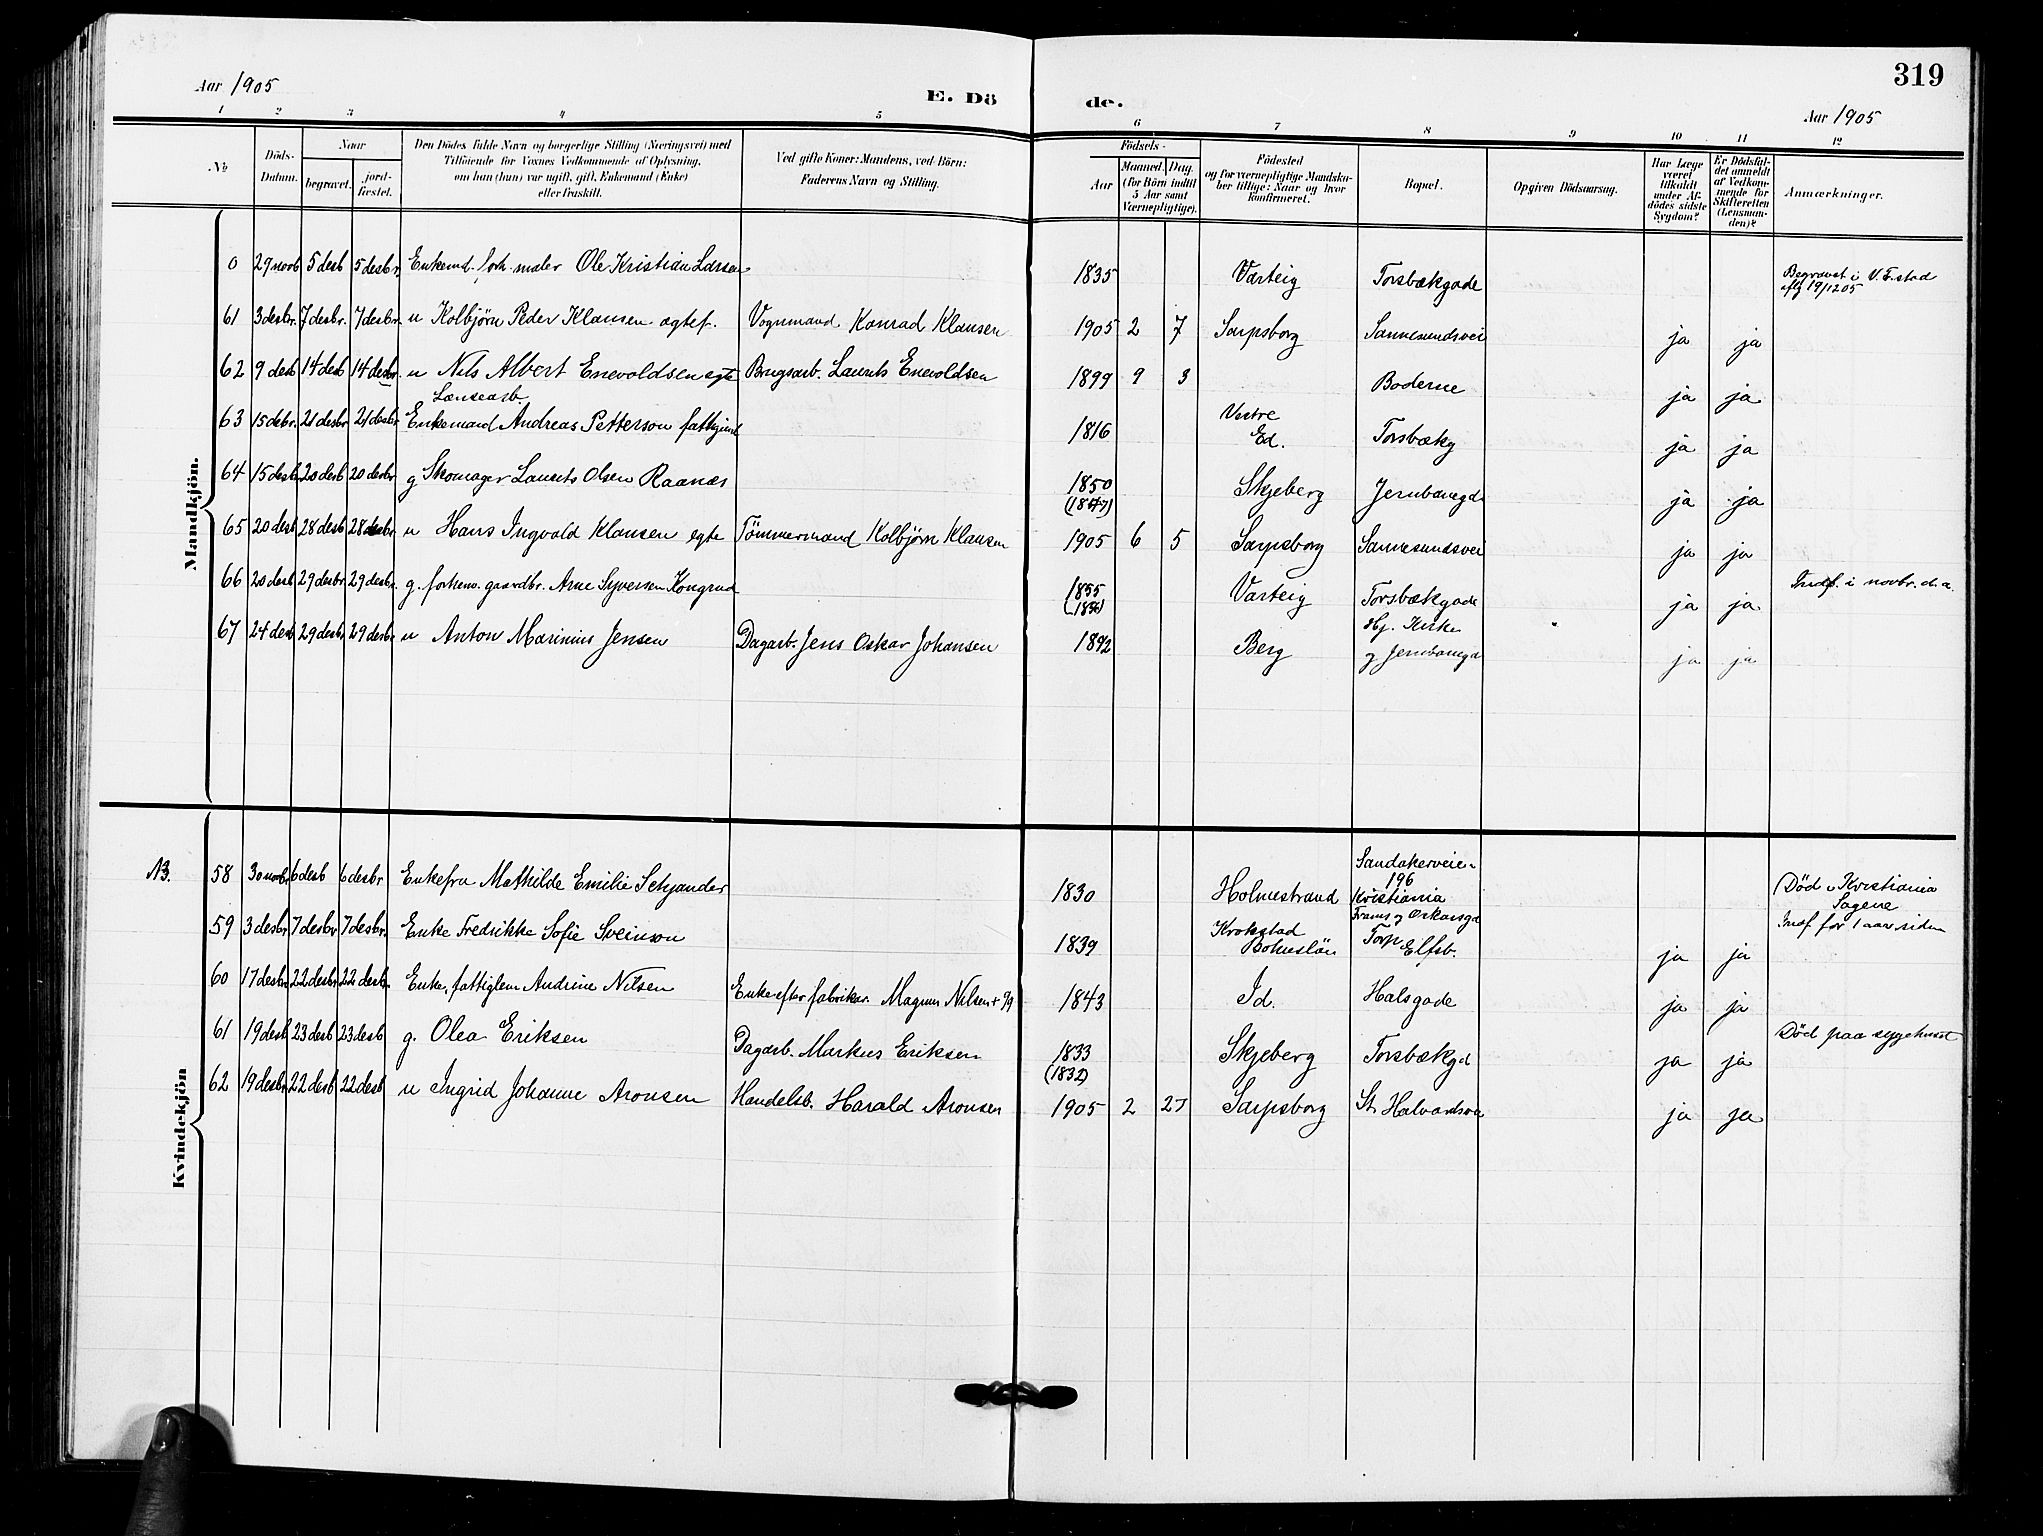 319
Aar 1905
E. Dö de.
Aar 1905
1 2 3 4 5 6 7 8 9 10 11 12
No
Döds-Datum.
Naar
begravet.
jord-fæstet.
Den Dödes fulde Navn og borgerlige Stilling (Næringsvei) med
Tilföiende for Voxnes Vedkommende af Oplysning,
om han (hun) var ugift, gift, Enkemand (Enke)
eller fraskilt.
Ved gifte Koner: Mandens, ved Börn:
Faderens Navn og Stilling.
Födsels-
Aar
Maaned. Dag.
(for Börn indtil
5 Aar samt
Værnepligtige).
Födested
og for værnepligtige Mandskaber tillige: Naar og hvor
konfirmeret.
Bopæl.
Opgiven Dödsaarsag.
Har Læge
været
tilkaldt
under Afdödes sidste
Sygdom?
Er Dödsfaldet anmeldt
af Vedkommende for
Skifteretten
(Lensmanden)?
Anmærkninger.
Mandkjön.
0 29 novb 5 desb 5 desbr. Enkemd. forh. maler Ole Kristian Larsen 1835 Varteig Torsbækgade Begravet i V. F.stad
afg 19/12 05
61 3 desbr. 7 desbr. 7 desbr. u Kolbjørn Peder Klausen egtef. Vognmand Konrad Klausen 1905 2 7 Sarpsborg Sannesundsvei ja ja
62 9 desb 14 desb 14 desbr. u Nils Albert Enevoldsen egte Brugsarb. Laurits Enevoldsen 1899 9 3 Boderne ja ja
Lænsearb.
63 15 debr. 21 desbr 21 desbr Enkemand Andreas Petterson fattigund 1816 Vestre
Ed. Torsbækg ja ja
64 15 desb 20 desb 20 desbr g Skomager Laurits Olsen Raanæs 1850 Skjeberg Jernbanegd ja ja
65 20 desb 28 desb 28 desbr u Hans Ingvald Klausen egte Tømmermand Kolbjørn Klausen 1905 6 5 Sarpsborg Sannesundsvei ja ja
66 20 desb 29 desbr 29 desbr. g. forhenv. gaardbr. Arne Syversen Kongrud 1855 Varteig Torsbækgade ja ja Indf. i novbr. d. a.
67 24 desb 29 desb. 29 desb. u Anton Marinius Jensen Dagarb. Jens Oskar Johansen 1892 Berg Hj. Kirke
g Jernbanegd ja ja
Kvindekjön
N3. 58 30 novbr 6 desb 6 desbr Enkefru Mathilde Emilie Schjander 1830 Holmestrand Sandakerveien
196
Kristiania Død i Kristiania
Sagene
59 3 desbr. 7 desbr 7 desbr. Enke Fredrikke Sofie Sveinson 1839 Krokstad
Bohuslän Frams g Oskarsgd
Torp Elfsb. ja ja Indf. for 1 aar siden
60 17 desbr 22 desbr 22 desbr Enke, fattiglem Andrine Nilsen Enke efter fabrikar. Magnus Nilsen + 7/9 1843 Id. Halsgade ja ja
61 19 desb 23 desb 23 desb g. Olea Eriksen Dagarb. Markus Eriksen 1833
(1832) Skjeberg Torsbækgd ja ja Død paa sygehuset
62 19 desbr 22 desb 22 desb u Ingrid Johanne Aronsen Handelsb. Harald Aronsen 1905 2 27 Sarpsborg St. Halvardsvei ja ja